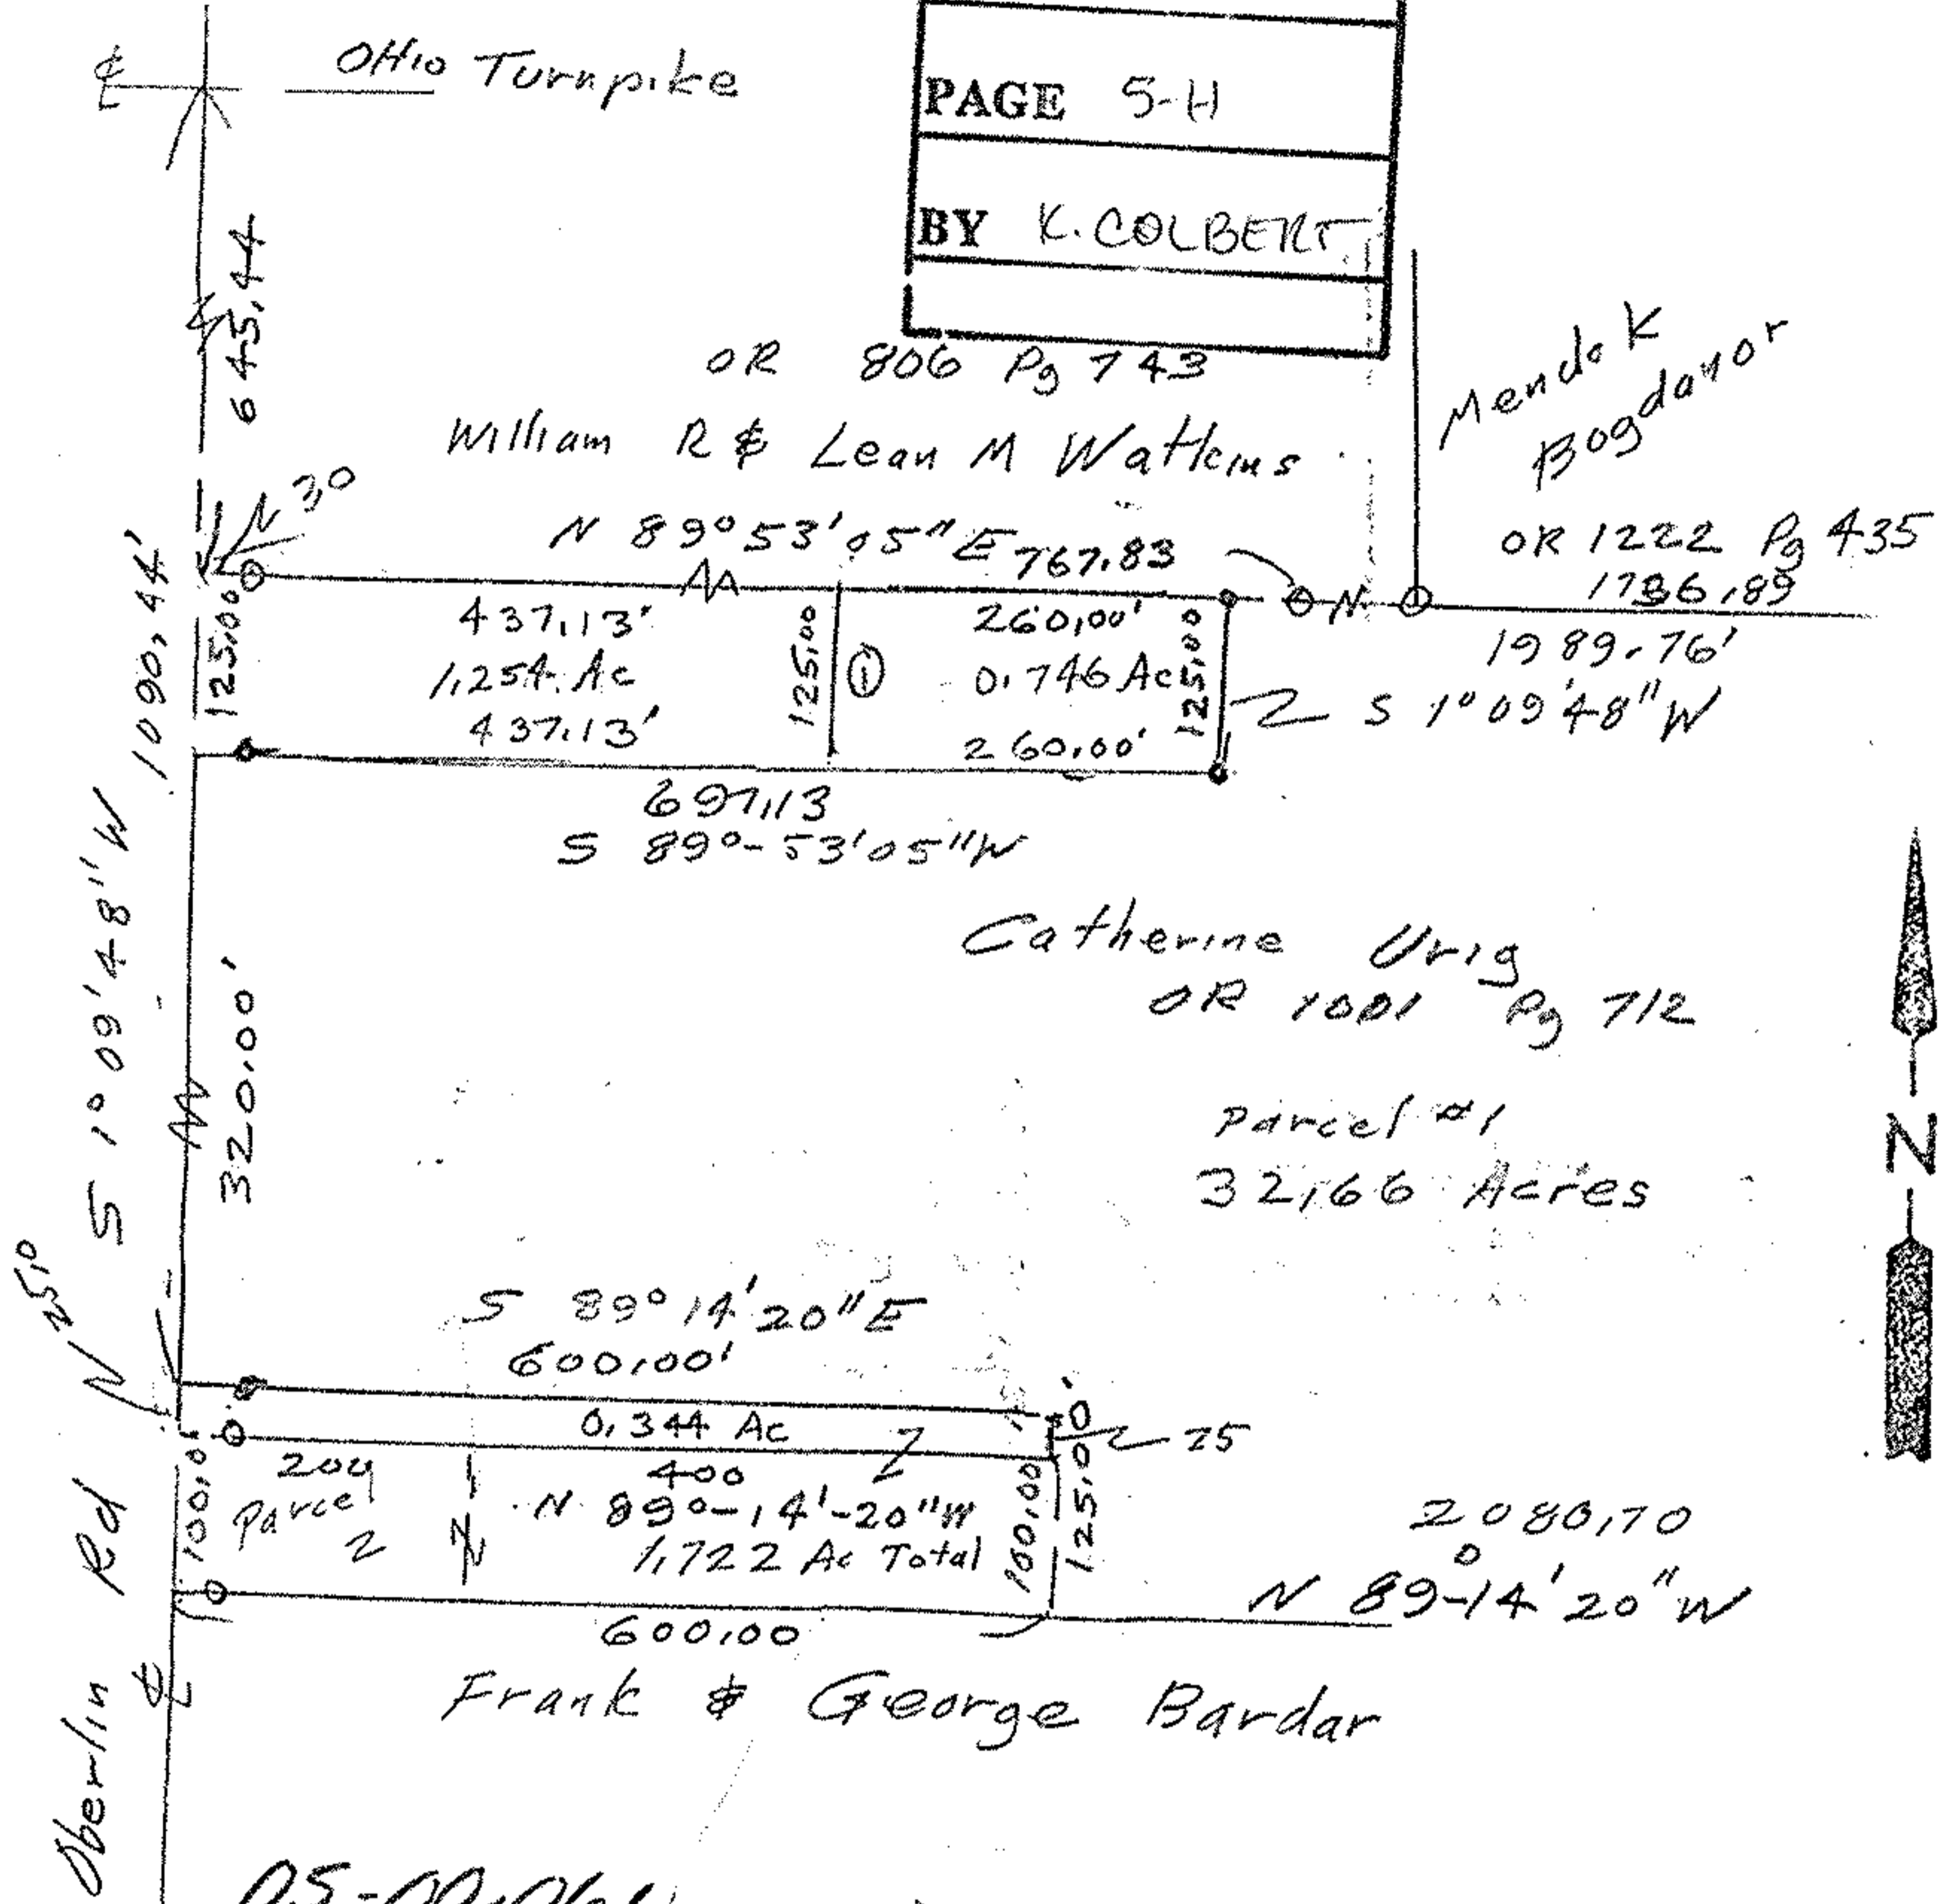 ℄ Ohio Turnpike
PAGE 5-H
BY K. COLBERT
645.44
OR 806 Pg 743
William R & Lean M Watkins
Mendo K
Bogdanor
OR 1222 Pg 435
1736.89
30
N 89° 53' 05" E 767.83
1989.76'
S 1° 09' 48" W
1090.44'
125.00
437.13'
1.254 Ac
437.13'
125.00
①
260.00'
0.746 Ac
260.00'
125.00
697.13
S 89°-53'05"W
S 1° 09' 48" W
320.00'
Catherine Urig
OR 1001 Pg 712
Parcel #1
32.66 Acres
N
S 89° 14' 20" E
600.00'
25.0
0.344 Ac
25
100.0
200
Parcel
2
400
N 89°-14'-20"W
1.722 Ac Total
100.00
125.00'
2080.70
N 89°-14' 20" W
600.00
Frank & George Bardar
Oberlin Rd
℄